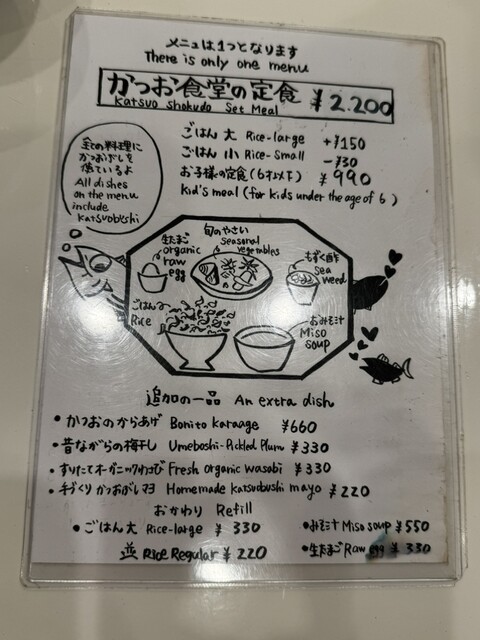 メニュは1つとなります
There is only one menu
かつお食堂の定食 ¥2.200
Katsuo Shokudo Set Meal
ごはん 大 Rice-large +¥150
ごはん 小 Rice-Small -¥30
お子様の定食(6才以下) ¥990
kid's meal (for kids under the age of 6)
全ての料理に
かつおぶしを
使ているよ
All dishes
on the menu
include
katsuobushi
生たまご
organic
raw
egg
旬のやさい
seasonal
vegetables
もずく酢
Sea
weed
ごはん
Rice
おみそ汁
Miso
soup
追加の一品 An extra dish
• かつおのからあげ Bonito karaage ¥660
• 昔ながらの梅干し Umeboshi-Pickled Plum ¥330
• すりたてオーガニックわさび Fresh organic wasabi ¥330
• 手づくりかつおぶしマヨ Homemade katsuobushi mayo ¥220
おかわり Refill
• ごはん大 Rice-large ¥330
• みそ汁 Miso soup ¥550
並 Rice Regular ¥220
• 生たまご Raw egg ¥330